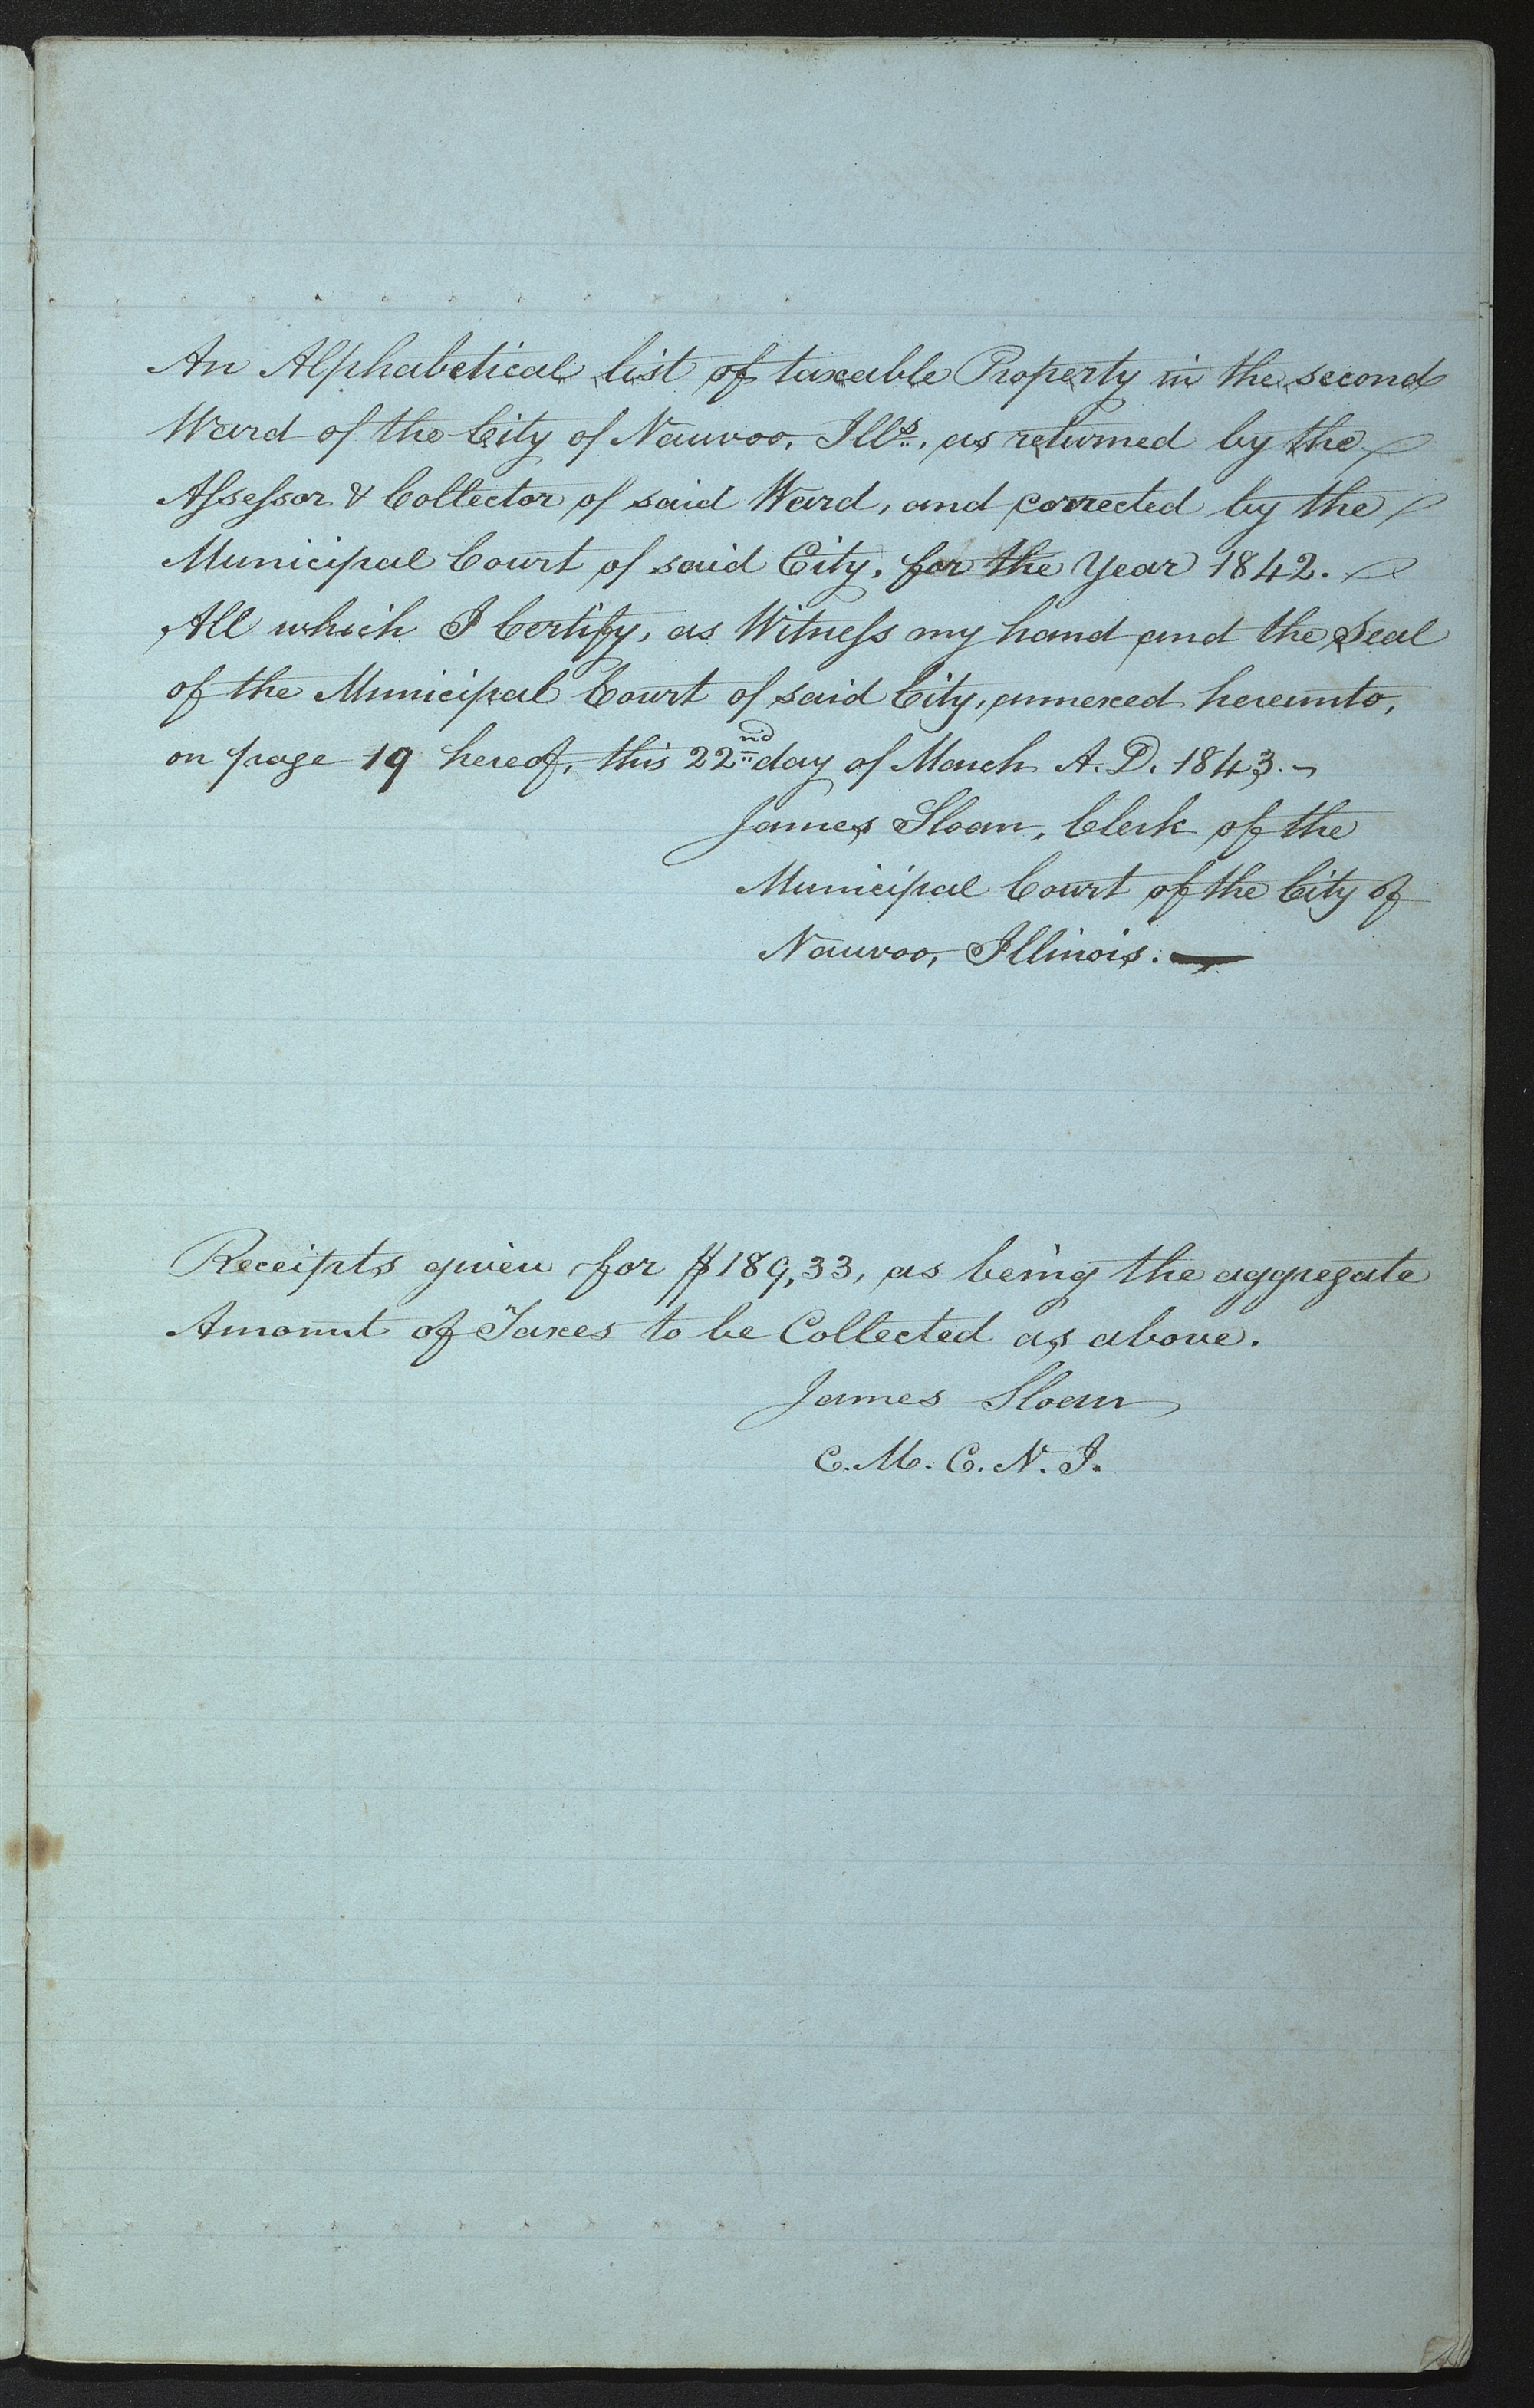 An Alphabetical list of taxable Property in the second
Ward of the City of Nauvoo, Ills., as returned by the
Assessor & Collector of said Ward, and corrected by the
Municipal Court of said City, for the Year 1842.
All which I Certify, as Witness my hand and the Seal
of the Municipal Court of said City, annexed hereunto,
on page 19 hereof, this 22nd day of March A. D. 1843.
James Sloan, Clerk of the
Municipal Court of the City of
Nauvoo, Illinois.
Receipts given for $189,33, as being the aggregate
Amount of Taxes to be Collected as above.
James Sloan
C. M. C. N. I.